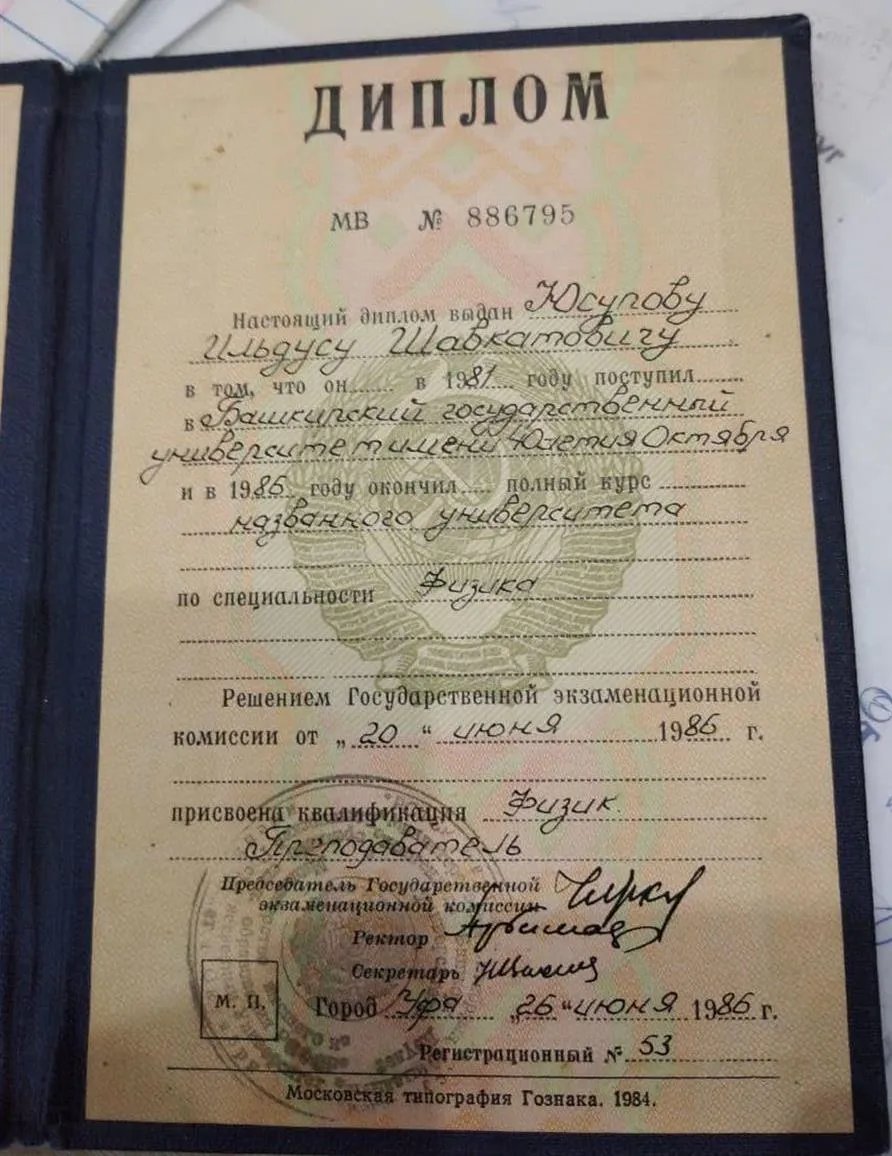 ДИПЛОМ
МВ № 886795
Настоящий диплом выдан Юсупову
Ильдусу Шавкатовичу
в том, что он в 1981 году поступил
в Башкирский государственный
университет имени 40-летия Октября
и в 1986 году окончил полный курс
названного университета
по специальности Физика
Решением Государственной экзаменационной
комиссии от „20“ июня 1986 г.
присвоена квалификация Физик.
Преподаватель
Председатель Государственной
экзаменационной комиссии
Ректор
Секретарь
М. П. Город Уфа „26“ июня 1986 г.
Регистрационный № 53
Московская типография Гознака. 1984.